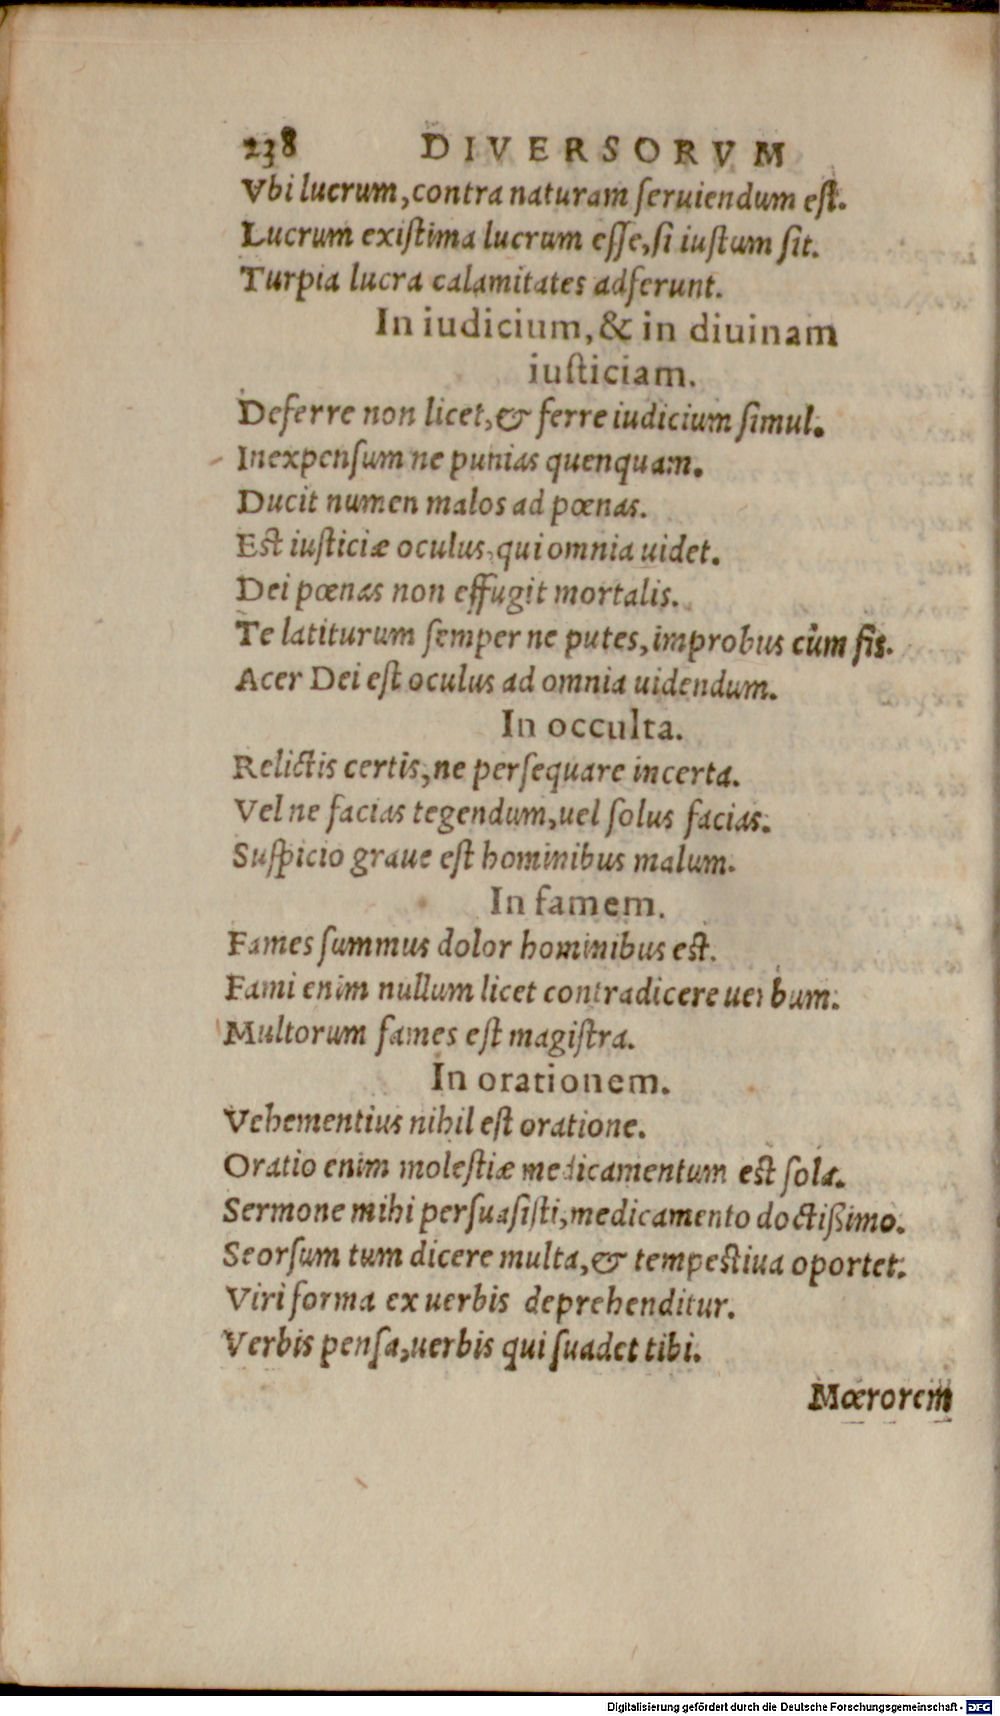 238 DIVERSORVM
Vbi lucrum, contra naturam ſeruiendum eſt.
Lucrum exiſtima lucrum eſſe, ſi iuſtum ſit.
Turpia lucra calamitates adferunt.
In iudicium, & in diuinam
iuſticiam.
Deferre non licet, & ferre iudicium ſimul.
Inexpenſum ne punias quenquam.
Ducit numen malos ad pœnas.
Eſt iuſticiæ oculus, qui omnia uidet.
Dei pœnas non effugit mortalis.
Te latiturum ſemper ne putes, improbus cùm ſis.
Acer Dei eſt oculus ad omnia uidendum.
In occulta.
Relictis certis, ne perſequare incerta.
Vel ne facias tegendum, uel ſolus facias.
Suſpicio graue eſt hominibus malum.
In famem.
Fames ſummus dolor hominibus eſt.
Fami enim nullum licet contradicere uerbum.
Multorum fames eſt magiſtra.
In orationem.
Vehementius nihil eſt oratione.
Oratio enim moleſtiæ medicamentum eſt ſola.
Sermone mihi perſuaſiſti, medicamento doctißimo.
Seorſum tum dicere multa, & tempeſtiua oportet.
Viri forma ex uerbis deprehenditur.
Verbis penſa, uerbis qui ſuadet tibi.
Mœrorem
Digitalisierung gefördert durch die Deutsche Forschungsgemeinschaft - DFG